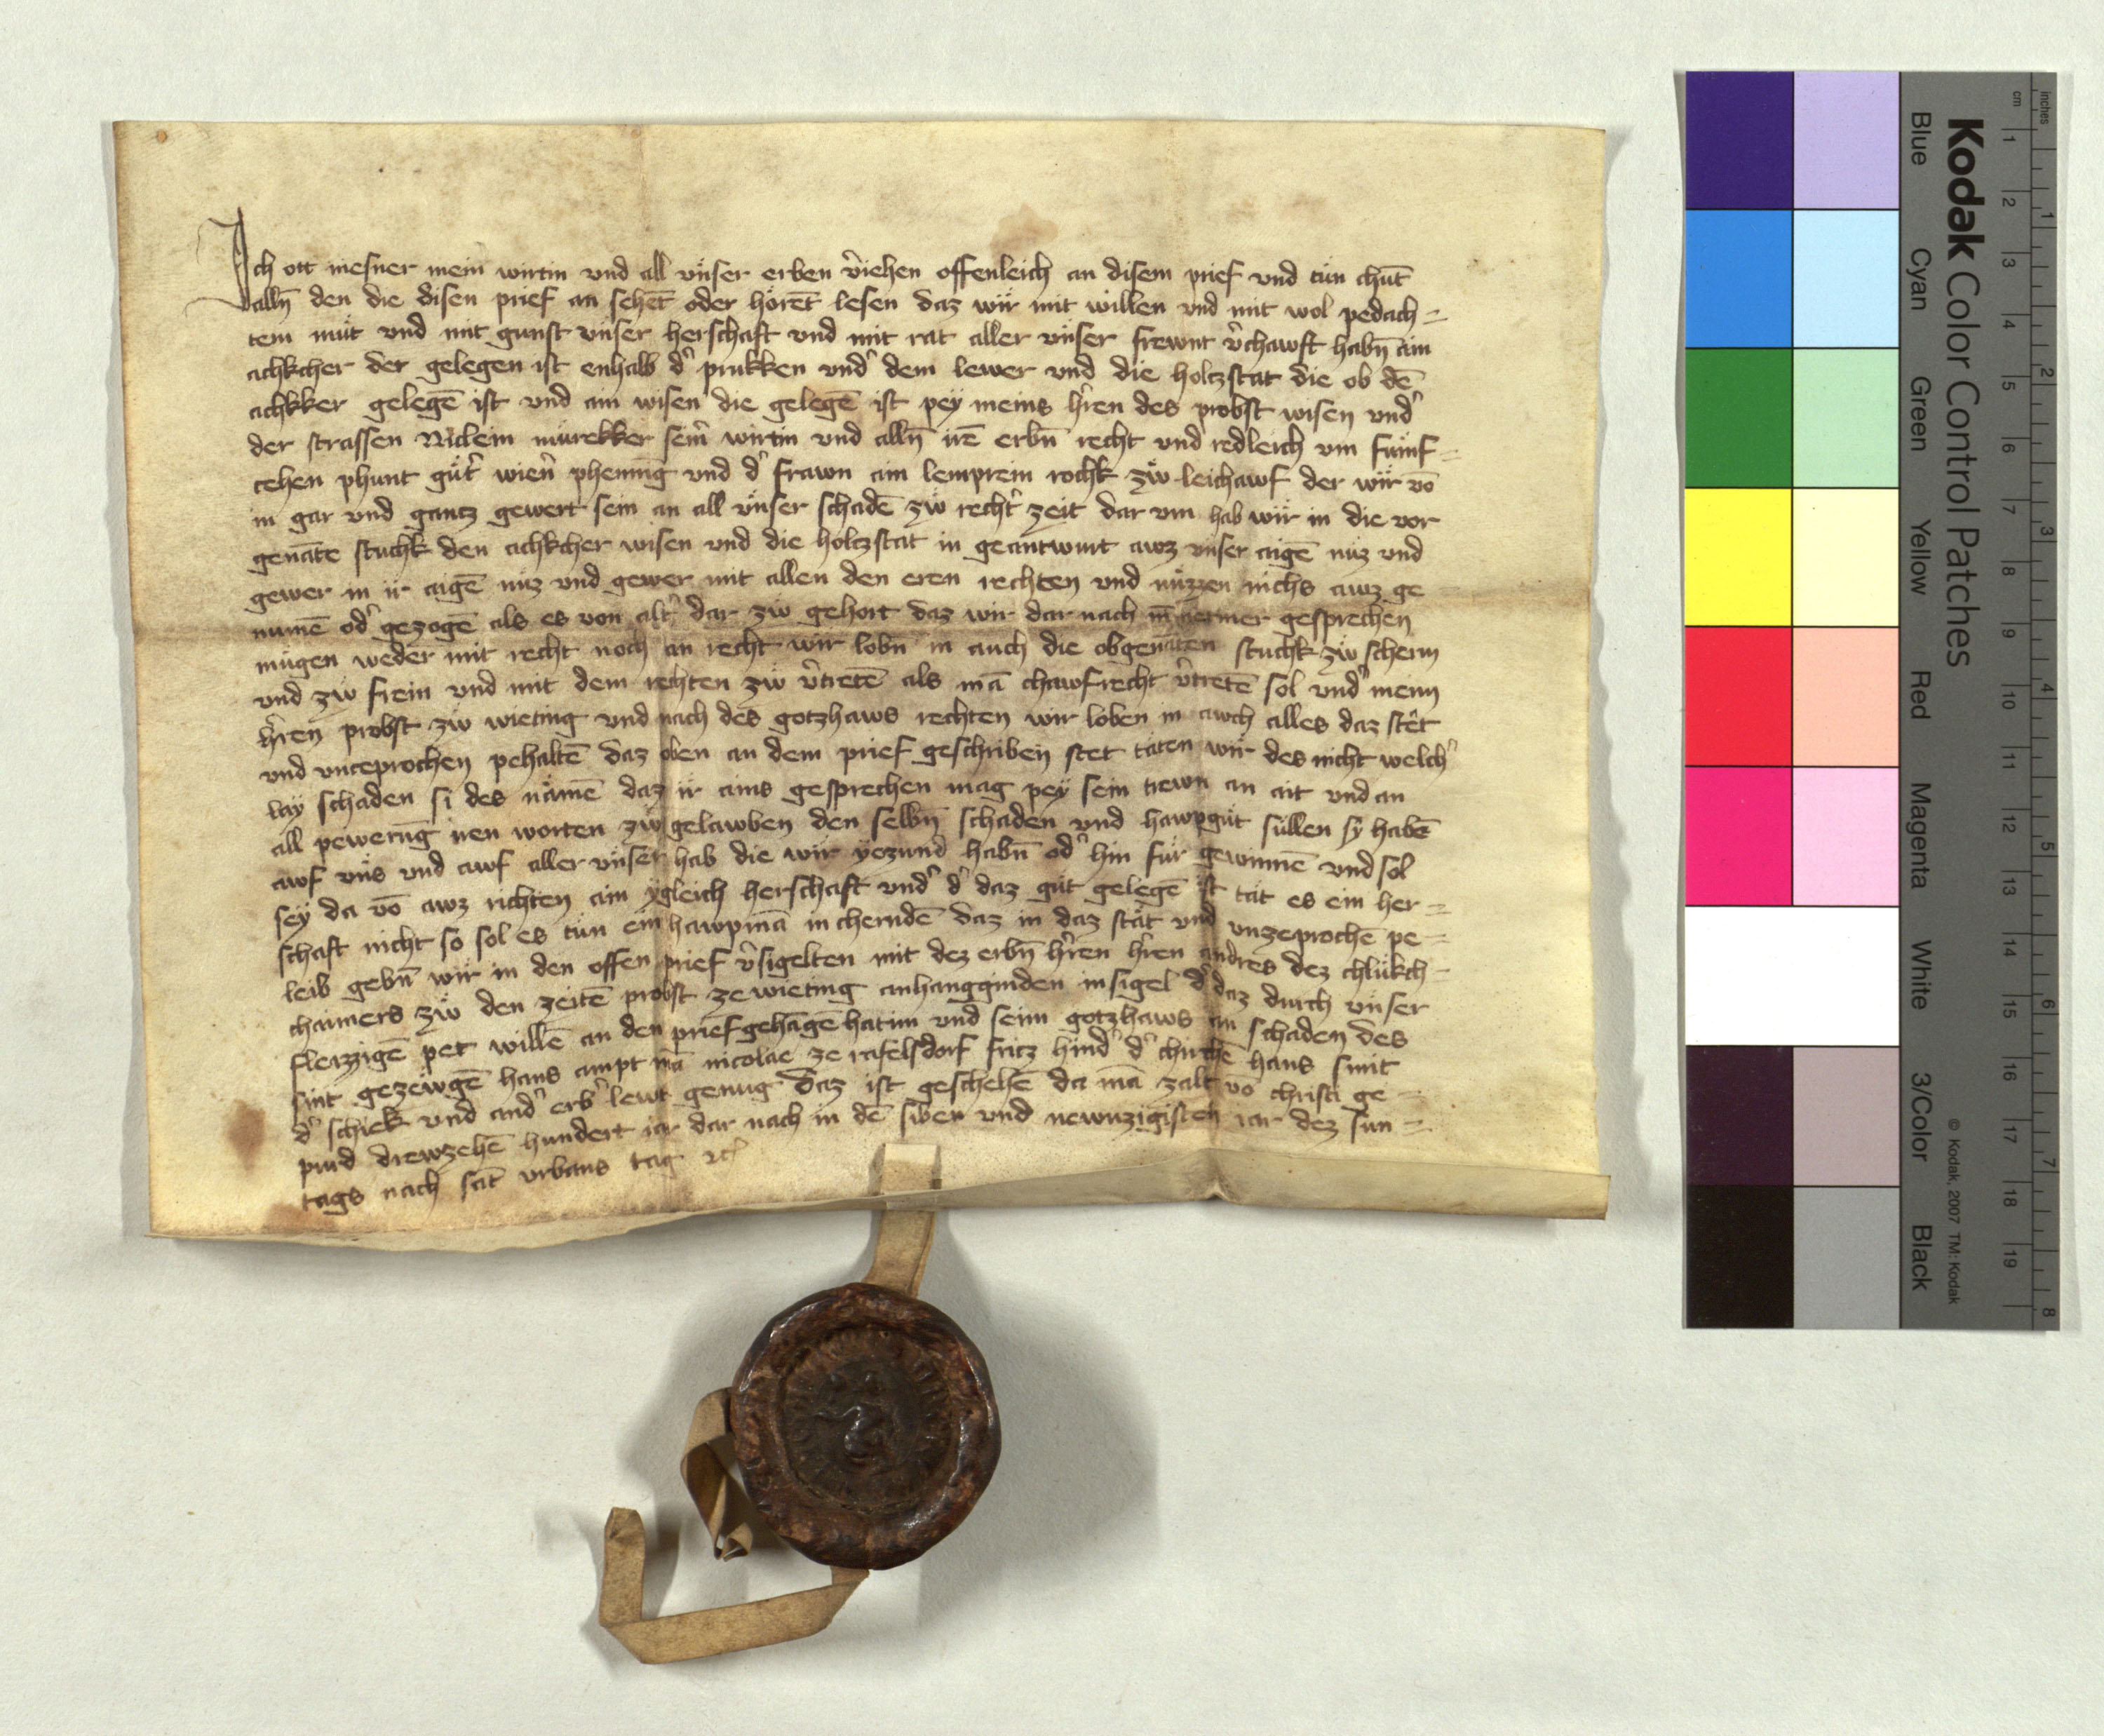 Ich ott mesner mein wirtin vnd all vnser erben v̾iehen offenleich an disem prief vnd tun chūt
alln̄ den die disen prief an sehēt oder hörēt lesen daz wir mit willen vnd mit wol pedach=
tem müt vnd mit gunst vnser herschaft vnd mit rat aller vnser frewnt v̾chawft habn̄ ain
achkcher der gelegen ist enhalb d̾ prukken vnd̾ dem lewer vnd die holczstat die ob dē
achkker gelegē ist vnd ain wisen die gelegē ist pey meins h̾ren des probst wisen vnd̾
der strassen Niclein murekker sein̄ wirtin vnd alln̄ irē erbn̄ recht vnd redleich vm fünf=
cehen phunt güt̾ wien̾ phennīg vnd d̾ frawn ain lemprein rochk zw̋ leichawf der wir vō
in gar vnd gantz gewert sein an all vnser schadē zw̋ recht̾ zeit dar vm hab wir in die vor
genāte stuchk den achkcher wisen vnd die holczstat in geantwurt awz vnser aigē nüz vnd
gewer in ir aigē nüz vnd gewer mit allen den eren rechten vnd nüzzen nichs awz ge
numē od̾ gezogē als es von alt̾ dar zw̋ gehort daz wir dar nach nermer gesprechen
mügen weder mit recht noch an recht wir lobn̄ in auch die obgenāten stuchk zw̋ scherm
vnd zw̋ frein vnd mit dem rechten zw̋ v̾tretē als mā chawfrecht v̾tretē sol vnd̾ menn
h̾ren probst zw̋ wieting vnd nach des gotzhaws rechten wir loben in awch alles daz stēt
vnd vnceprochen pehaltē daz oben an dem prief geschriben stet täten wir des nicht welch̾
lay schaden si des nämē daz ir ains gesprechen mag pey sein trewn an ait vnd an
all pewerūg iren worten zw̋ gelawben den selbn̄ schaden vnd hawpgüt süllen sy habē
awf vns vnd awf aller vnser hab die wir yezund habn̄ od̾ hin für gewinnē vnd sol
sey da vō awz richten ain ygleich herschaft vnd̾ d̾ daz güt gelegē ist tät es ein her=
schaft nicht so sol es tün ein hawpmā in cherndē daz in daz stät vnd vnzeprochē pe=
leib gebn̄ wir in den offen prief v̾sigelten mit dez erbn̄ h̾ren h̾ren andres dez chlükch=
chaimers zw̋ den zeitē probst ze wieting anhangginden insigel d̾ daz durch vnser
fleizzigē pet willē an den prief gehāgē hat im vnd seim gotzhaws an schaden des
sint gezewgē hans ampt mā nicolae ze rafelsdorf fritz hind̾ d̾ chirchē hans smit
d̾ schiek vnd and̾ erb̾ lewt genug daz ist geschehē da mā zalt vō christi ge=
purd drewzehē hundert iar dar nach in dē siben vnd newnzigisten iar dez sun=
tags nach sāt vrbans tag
Kodak Color Control Patches
Blue Cyan Green Yellow Red Magenta White 3/Color Black
© Kodak, 2007 TM: Kodak
cm 1 2 3 4 5 6 7 8 9 10 11 12 13 14 15 16 17 18 19
inches 1 2 3 4 5 6 7 8